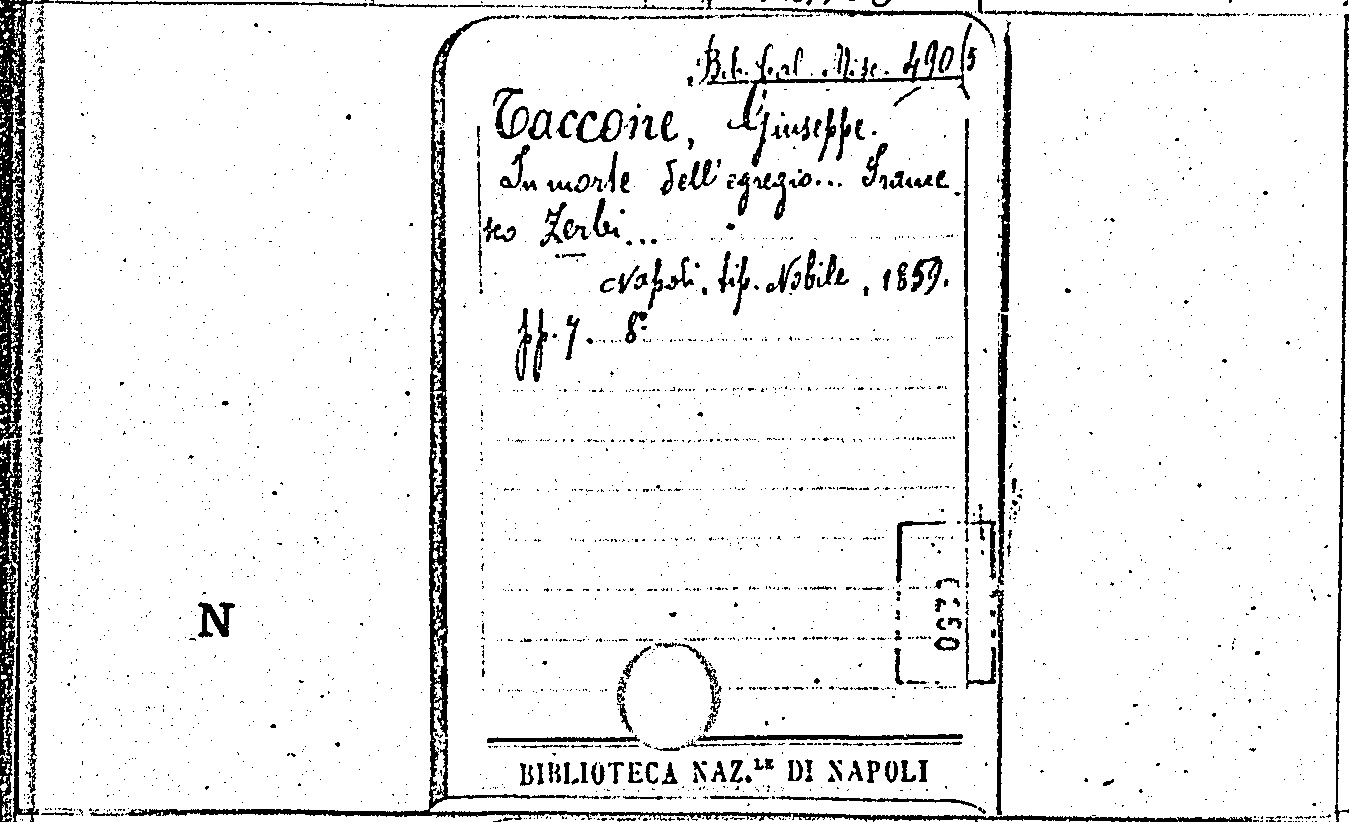 Bib. Prov. Misc. 490 (5
Taccone, Giuseppe.
In morte dell'egregio... France
sco Zerbi...
Napoli, tip. Nobile, 1859.
pp. 7. 8º
N
BIBLIOTECA NAZ.LE DI NAPOLI